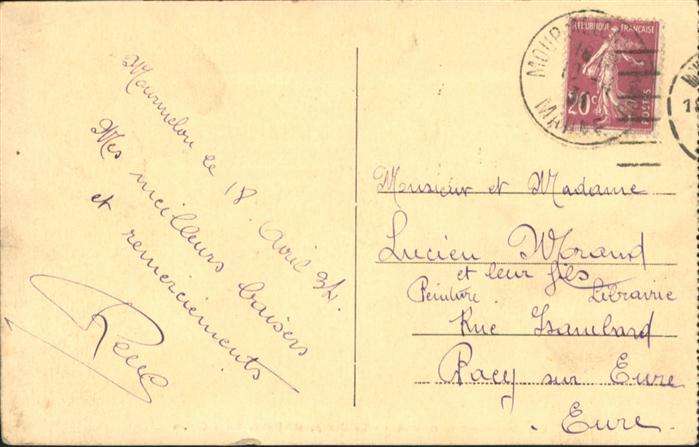 Mourmelon le 18 Avril 34.
Mes meilleurs baisers
et remerciements
René
REPUBLIQUE FRANÇAISE
20c
POSTES
MOURMELON
MARNE
Monsieur et Madame
Lucien Morand
et leur fils
Peinture. Librairie
Rue Isambard
Pacy sur Eure
. Eure.